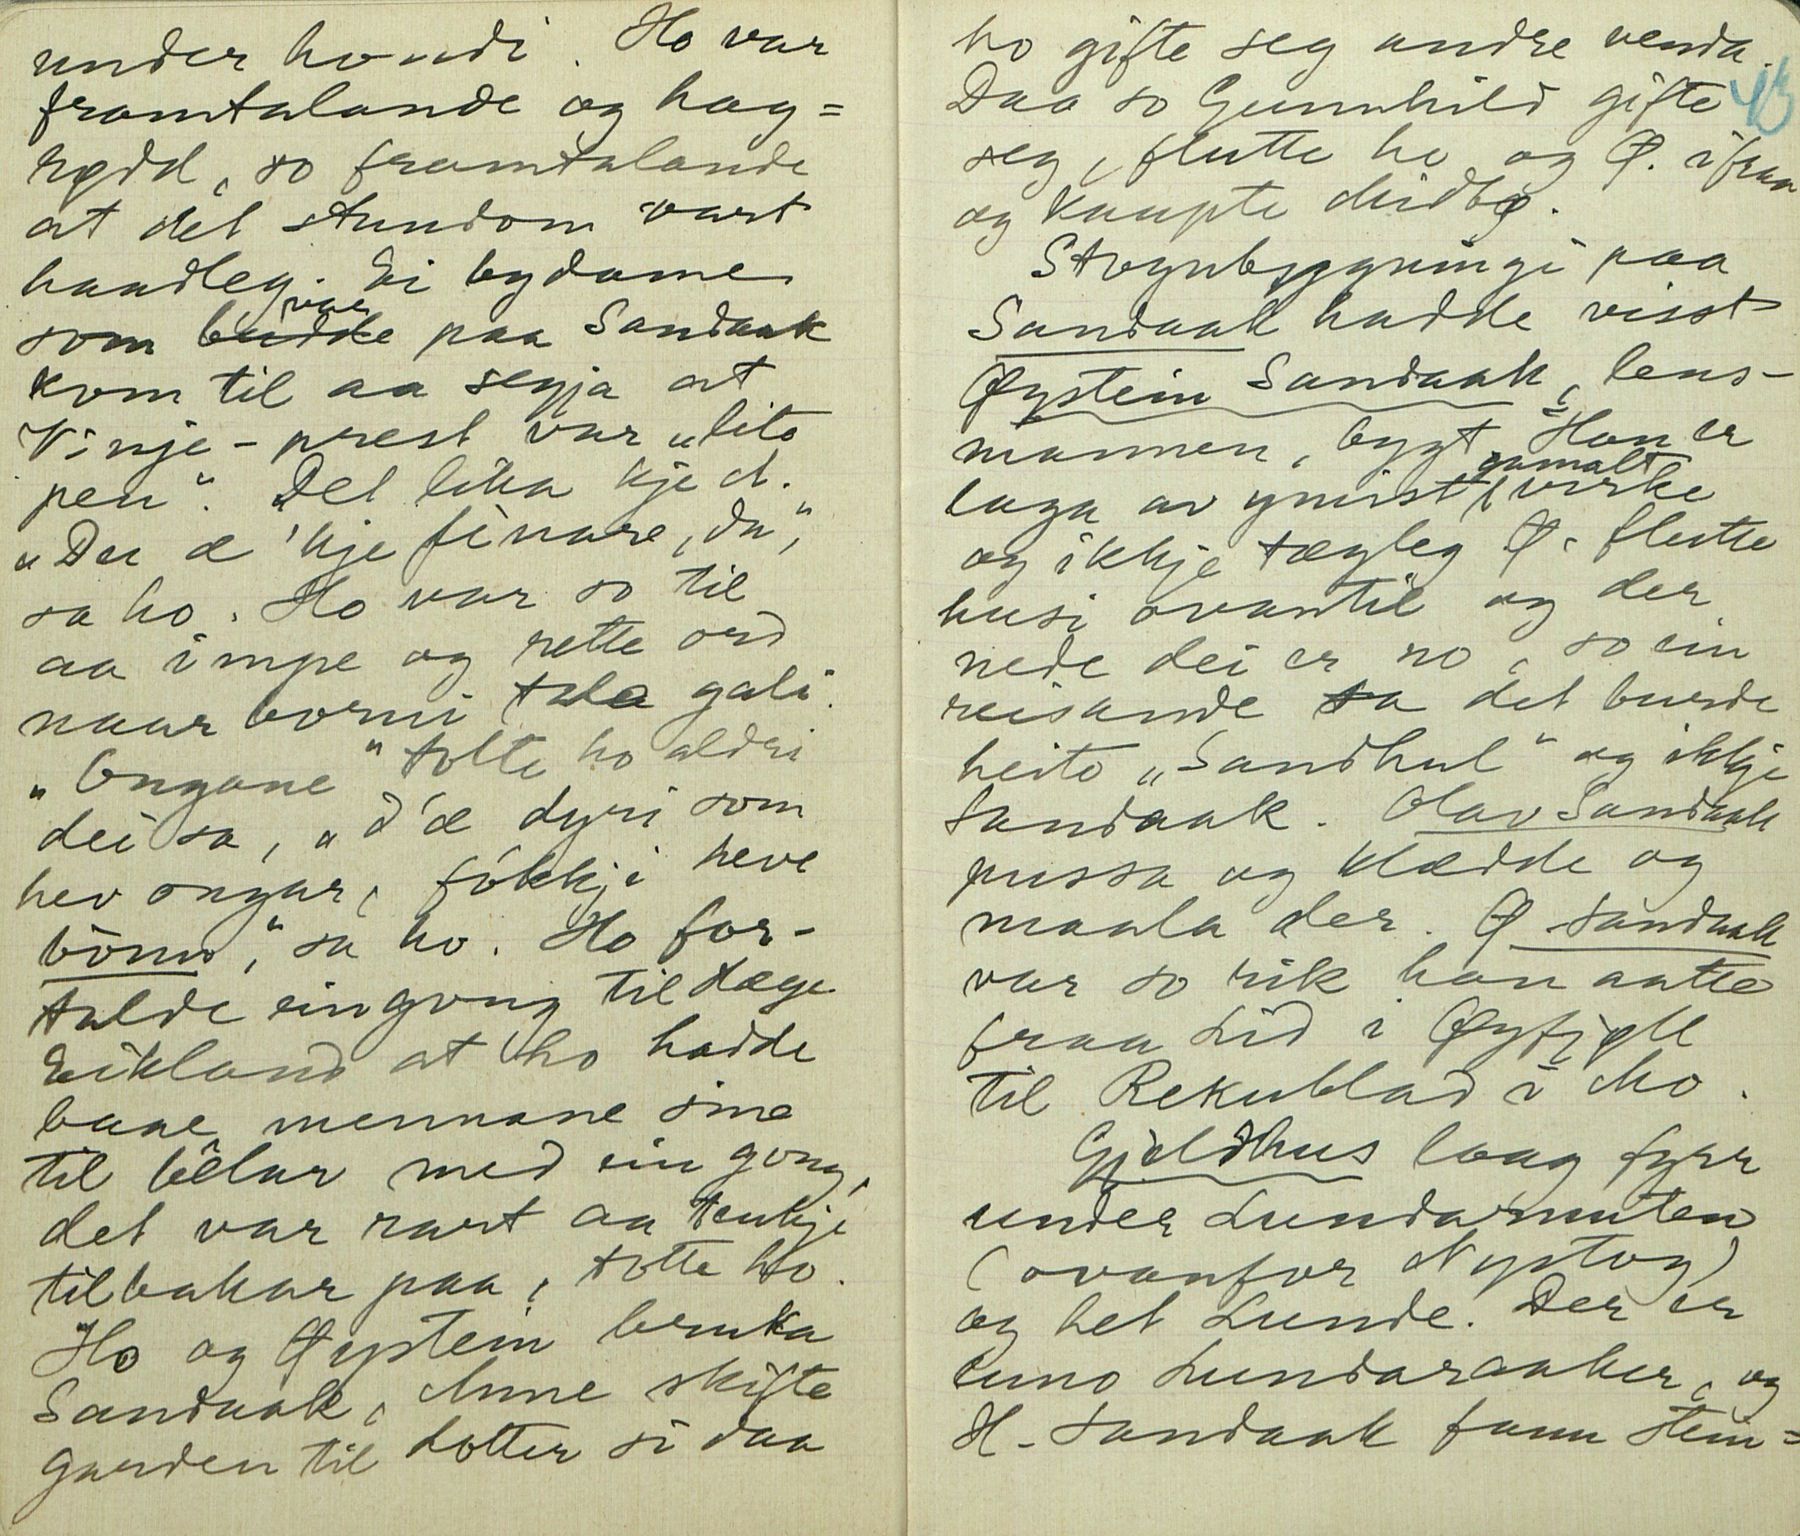 under hondi. Ho var
framtalande og hag=
rødd, so framtalande
at det stundom vart
haadleg. Ei bydame
som budde var paa Sandaak
kom til aa segja at
Vinje-prest var "lite
pen". Det lika kje A.
"Du æ 'kje finare, du",
sa ho. Ho var so til
aa impe og rette ord
naar borni tala gali.
"Ongane" tolte ho aldri
dei sa, "d'æ dyri som
hev ongar, fókkji heve
bönn", sa ho. Ho for-
talde ein gong til Læge
Eikland at ho hadde
baae mennane sine
til bêlar med ein gong,
det var rart aa tenkje
tilbakar paa, totte ho.
Ho og Øystein bruka
Sandaak, Anne skifte
garden til dotter si daa
ho gifte seg andre venda.
43
Daa so Gunnhild gifte
seg, flutte ho og Ø. ifraa
og kaupte Midbø.
Stogubygningi paa
Sandaak hadde visst
Øystein Sandaak, lens-
mannen, bygt. Han er
laga av ymist gamalt virke
og ikkje tægleg. Ø. flutte
husi ovantil og der
nede dei er no, so ein
reisande sa det burde
heite "Sandhul" og ikkje
Sandaak. Olav Sandaak
pussa og klædde og
maala der. Ø. Sandaak
var so rik han aatte
fraa Lid i Øyfjell
til Rekublad i Mo.
Gjeldhus laag fyrr
under Lundarnuten
(ovanfor Nystog)
og het Lunde. Der er
enno Lundaraaker, og
H. Sandaak fann stein=